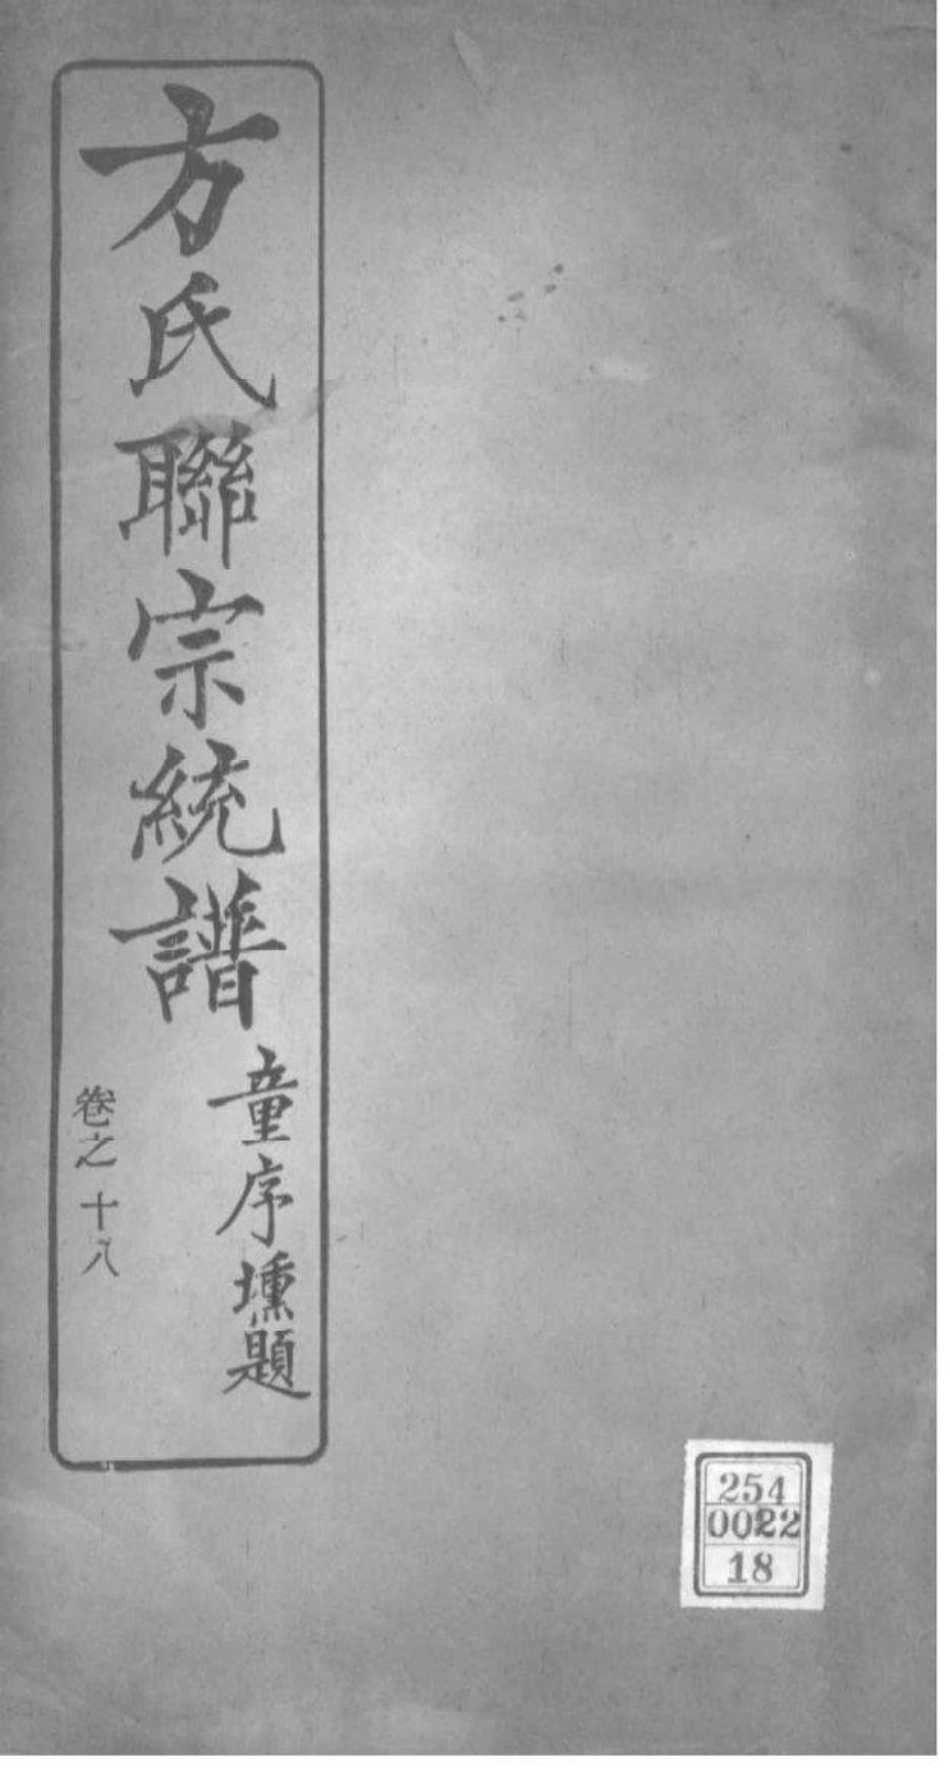 方氏聯宗統譜
童序壎題
卷之十八
254
0022
18